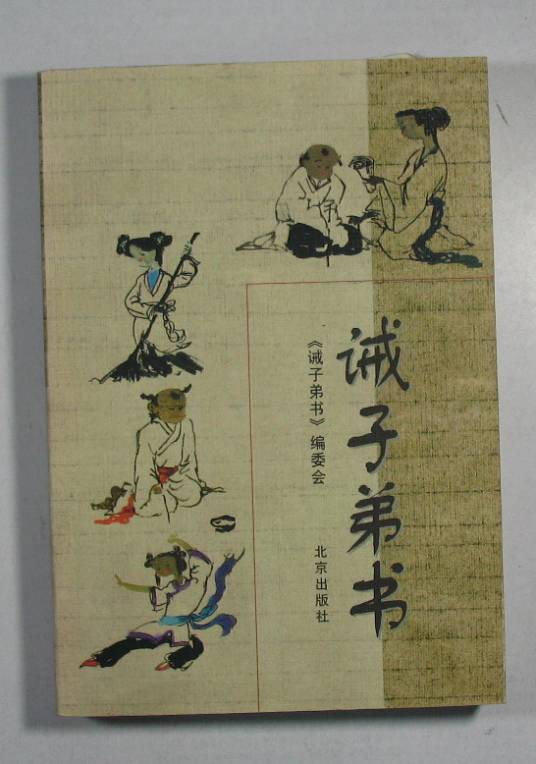 诫子弟书
《诫子弟书》编委会
北京出版社